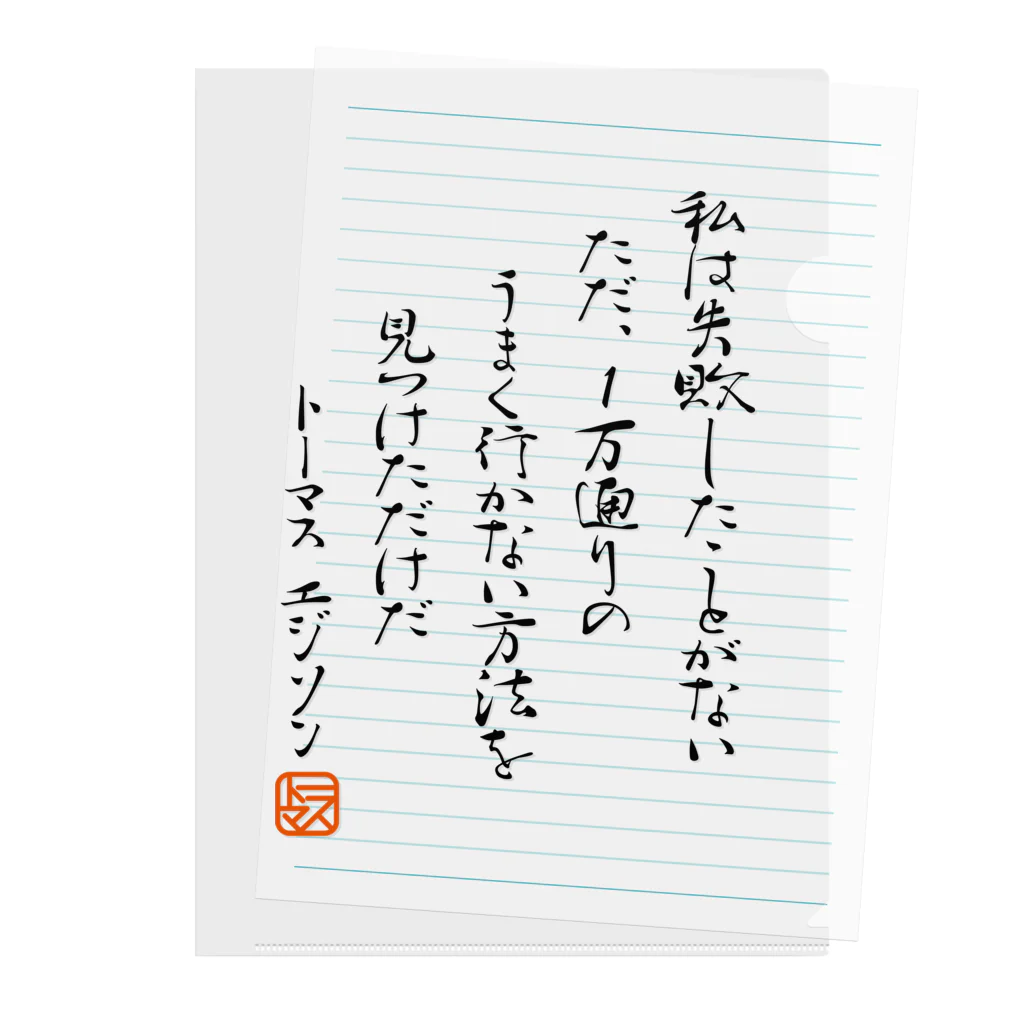 私は失敗したことがない
ただ、1万通りの
うまく行かない方法を
見つけただけだ
トーマス エジソン
トーマス